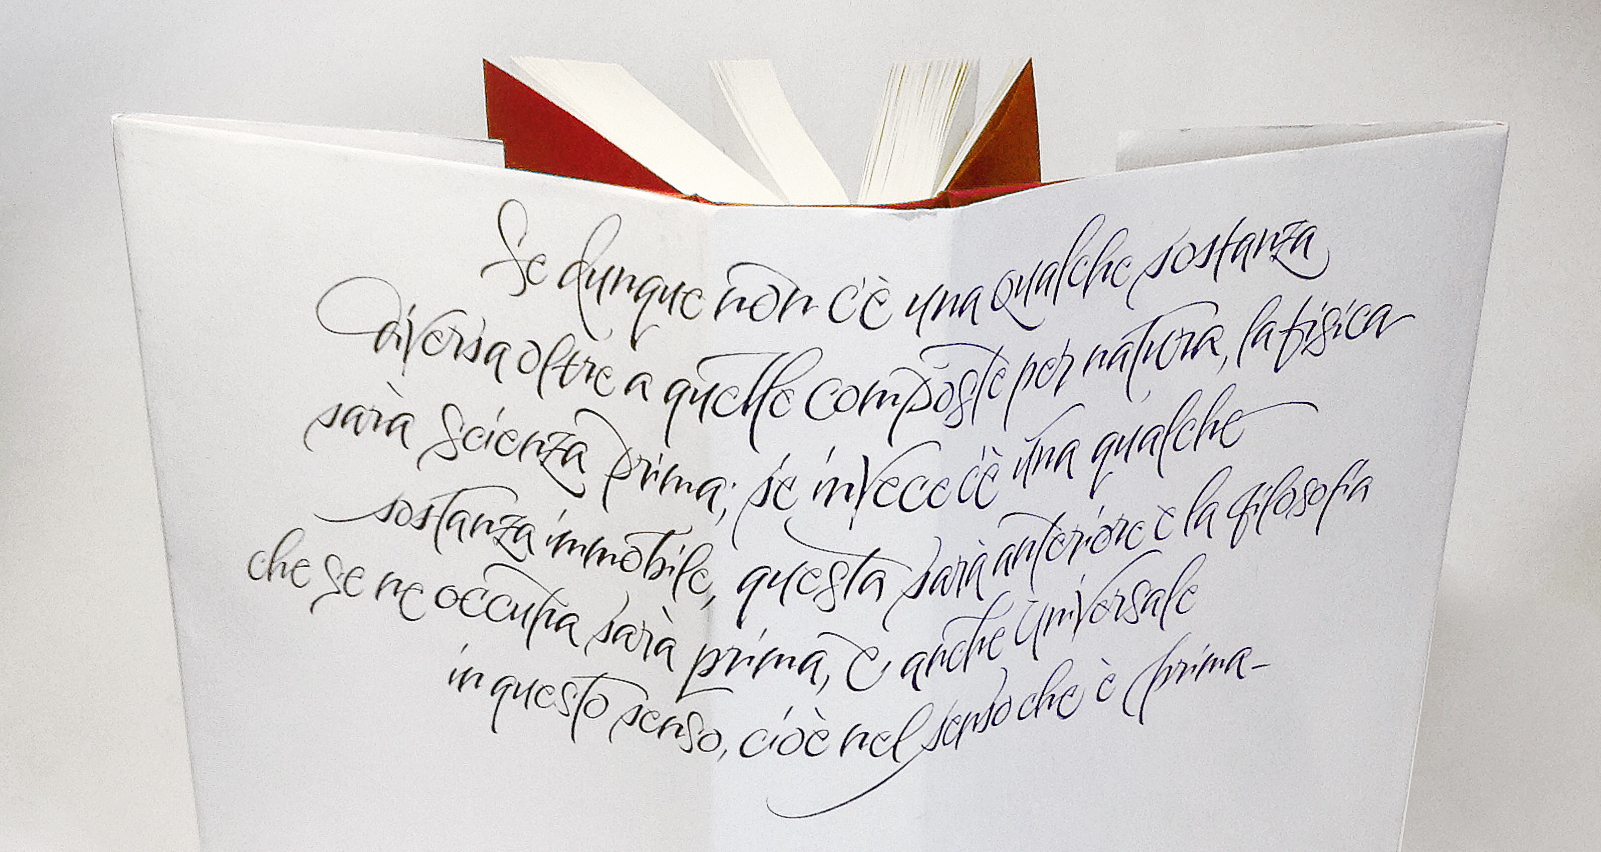 Se dunque non c'è una qualche sostanza
diversa oltre a quelle composte per natura, la fisica
sarà scienza prima; se invece c'è una qualche
sostanza immobile, questa sarà anteriore e la filosofia
che se ne occupa sarà prima, e, anche universale
in questo senso, cioè nel senso che è prima–